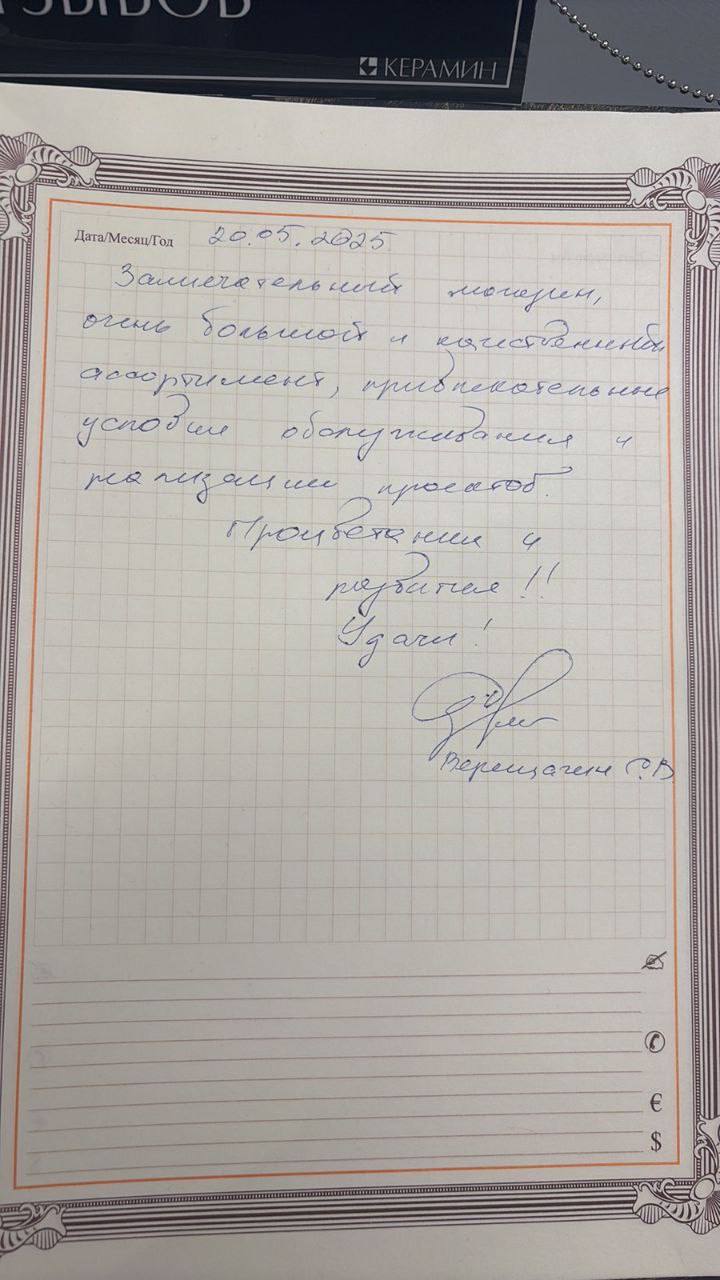 ЗЫВОВ
КЕРАМИН
Дата/Месяц/Год 20.05.2025
Замечательный магазин,
очень большой и качественный
ассортимент, привлекательные
условия обслуживания и
реализации проектов.
Процветания и
развития!!
Удачи!
Верещагин С.В
€
$